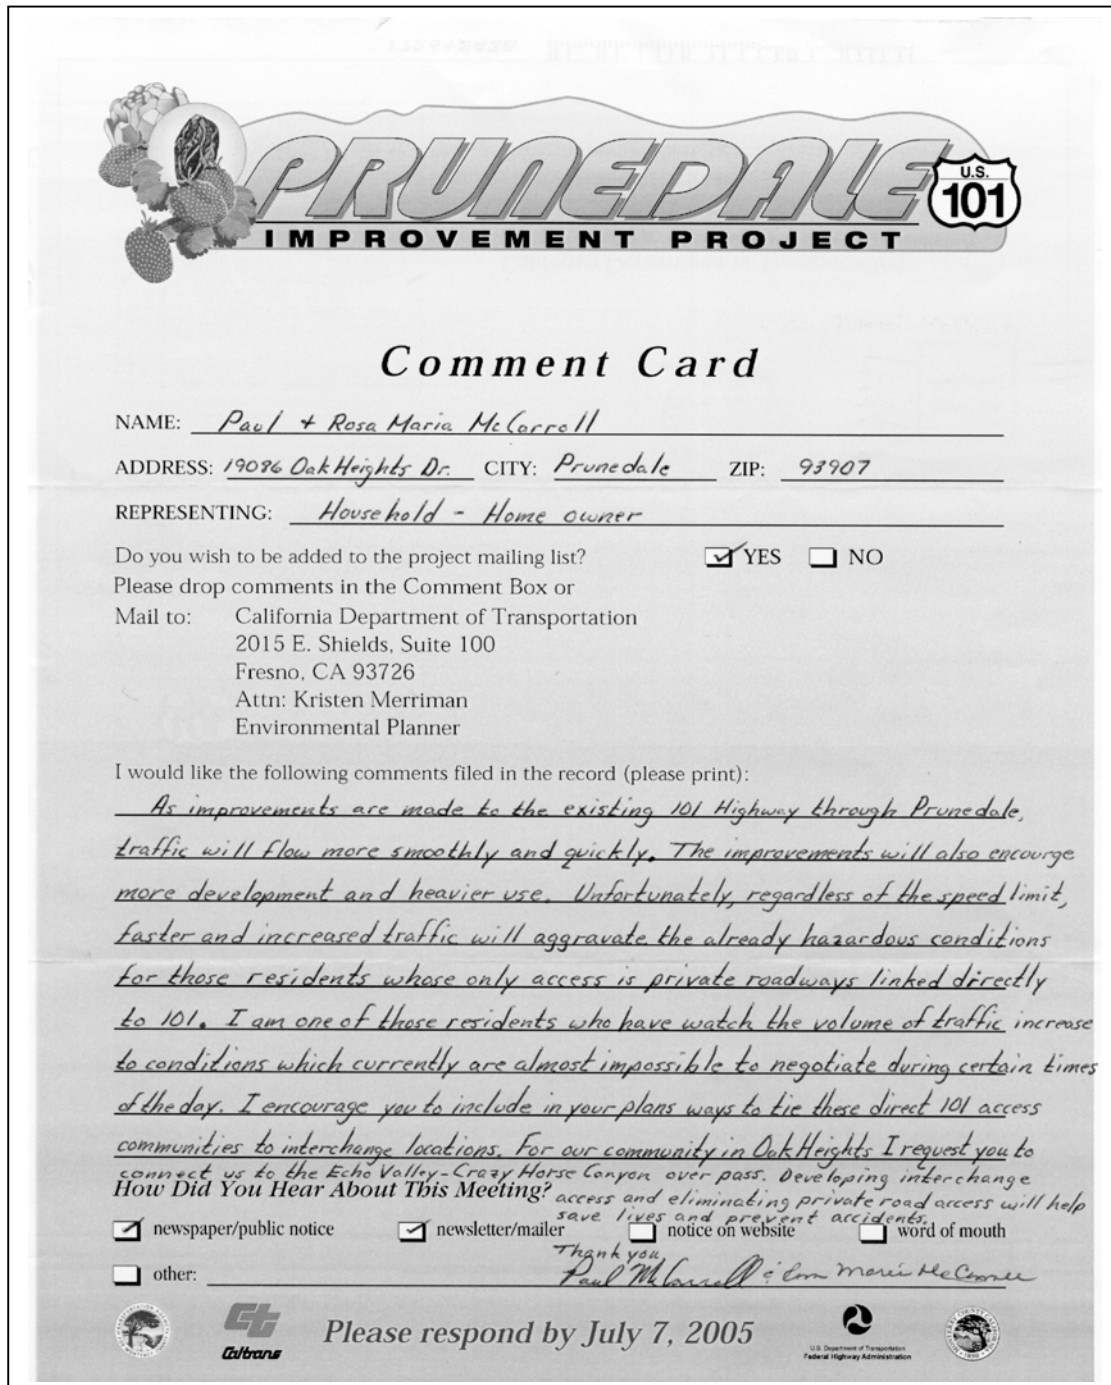 PRUNEDALE
U.S.
101
IMPROVEMENT PROJECT
Comment Card
NAME: Paul + Rosa Maria McCarroll
ADDRESS: 19086 Oak Heights Dr. CITY: Prunedale ZIP: 93907
REPRESENTING: Household - Home owner
Do you wish to be added to the project mailing list? YES NO
Please drop comments in the Comment Box or
Mail to: California Department of Transportation
2015 E. Shields, Suite 100
Fresno, CA 93726
Attn: Kristen Merriman
Environmental Planner
I would like the following comments filed in the record (please print):
As improvements are made to the existing 101 Highway through Prunedale,
traffic will flow more smoothly and quickly. The improvements will also encourge
more development and heavier use. Unfortunately, regardless of the speed limit,
faster and increased traffic will aggravate the already hazardous conditions
for those residents whose only access is private roadways linked directly
to 101. I am one of those residents who have watch the volume of traffic increase
to conditions which currently are almost impossible to negotiate during certain times
of the day. I encourage you to include in your plans ways to tie these direct 101 access
communities to interchange locations. For our community in Oak Heights I request you to
connect us to the Echo Valley-Crazy Horse Canyon over pass. Developing interchange
How Did You Hear About This Meeting? access and eliminating private road access will help
save lives and prevent accidents.
newspaper/public notice newsletter/mailer notice on website word of mouth
Thank you,
other: Paul McCarroll &
Caltrans
Please respond by July 7, 2005
U.S. Department of Transportation
Federal Highway Administration